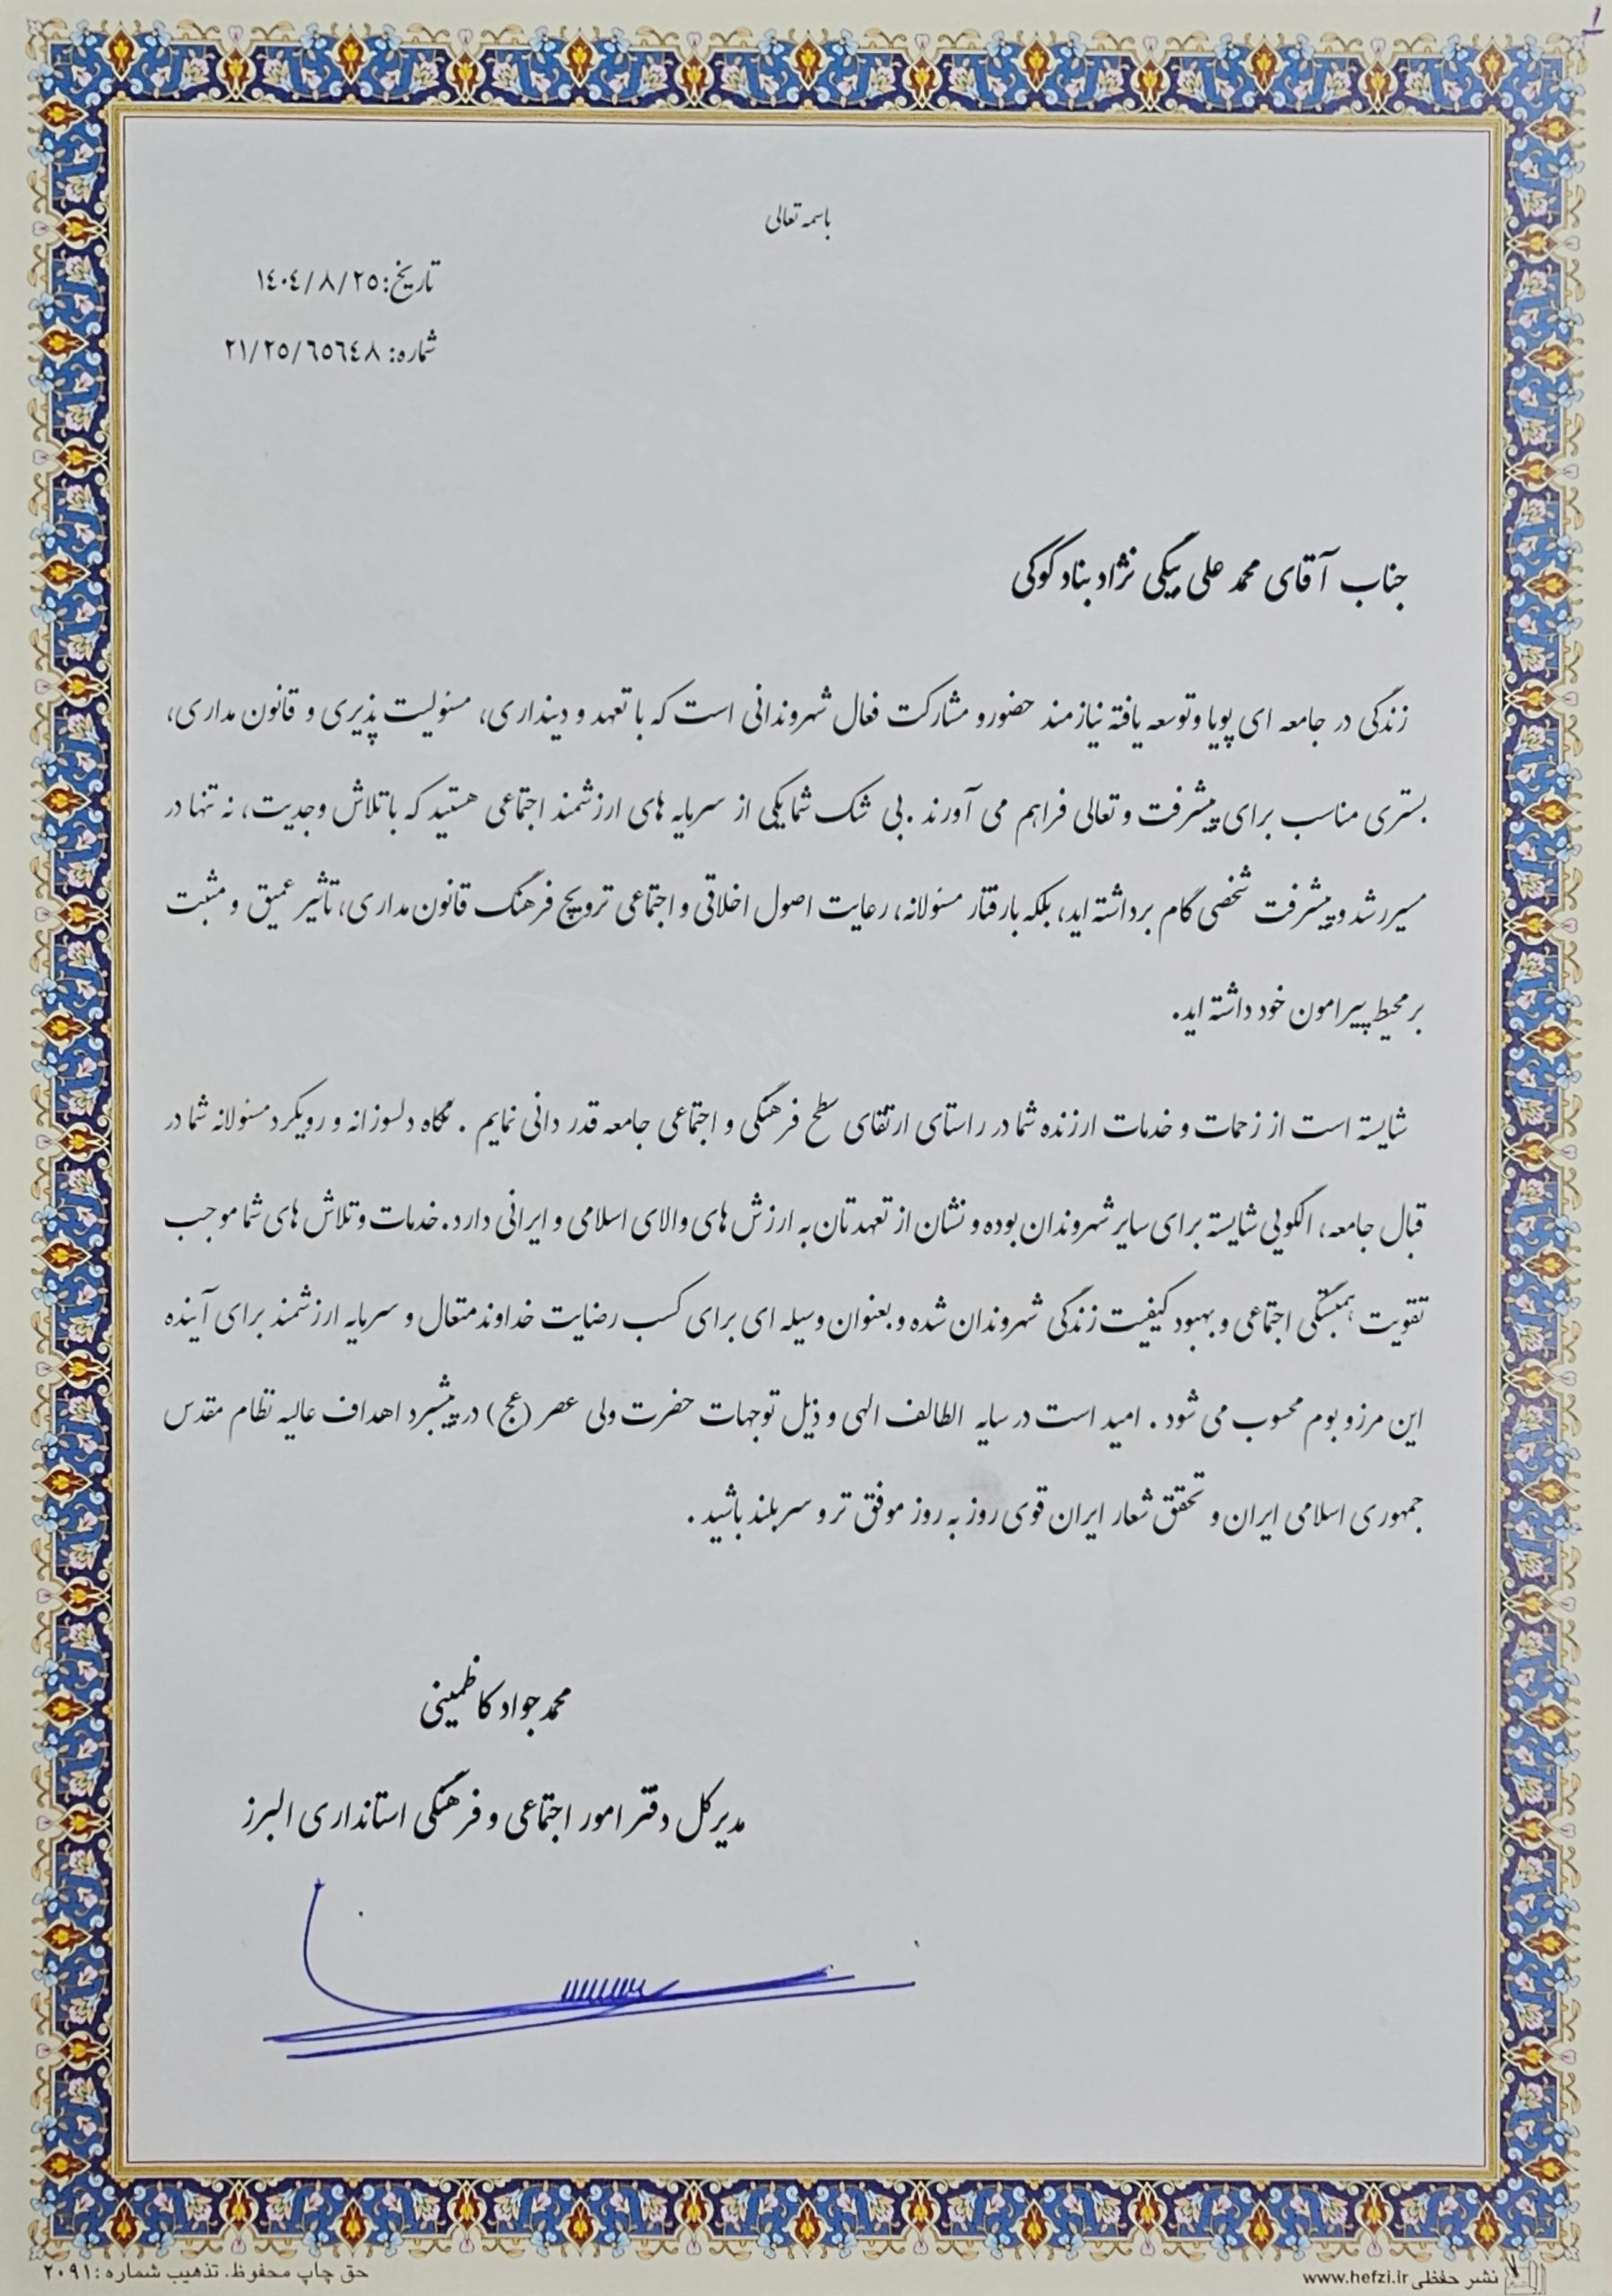 ۱
باسمه تعالی
تاریخ: ۱۴۰۴/۸/۲۵
شماره: ۲۱/۲۵/۶۵۶۴۸
جناب آقای محمد علی بیگی نژاد بنادکوکی
زندگی در جامعه ای پویا و توسعه یافته نیازمند حضور و مشارکت فعال شهروندانی است که با تعهد و دینداری، مسئولیت پذیری و قانون مداری،
بستری مناسب برای پیشرفت و تعالی فراهم می آورند. بی شک شما یکی از سرمایه های ارزشمند اجتماعی هستید که با تلاش و جدیت، نه تنها در
مسیر رشد و پیشرفت شخصی گام برداشته اید، بلکه با رفتار مسئولانه، رعایت اصول اخلاقی و اجتماعی ترویج فرهنگ قانون مداری، تأثیر عمیق و مثبت
بر محیط پیرامون خود داشته اید.
شایسته است از زحمات و خدمات ارزنده شما در راستای ارتقای سطح فرهنگی و اجتماعی جامعه قدر دانی نمایم. نگاه دلسوزانه و رویکرد مسئولانه شما در
قبال جامعه، الگویی شایسته برای سایر شهروندان بوده و نشان از تعهدتان به ارزش های والای اسلامی و ایرانی دارد. خدمات و تلاش های شما موجب
تقویت همبستگی اجتماعی و بهبود کیفیت زندگی شهروندان شده و بعنوان وسیله ای برای کسب رضایت خداوند متعال و سرمایه ارزشمند برای آینده
این مرز و بوم محسوب می شود. امید است در سایه الطالف الهی و ذیل توجهات حضرت ولی عصر (عج) در پیشبرد اهداف عالیه نظام مقدس
جمهوری اسلامی ایران و تحقق شعار ایران قوی روز به روز موفق تر و سربلند باشید.
محمد جواد کاظمینی
مدیر کل دفتر امور اجتماعی و فرهنگی استانداری البرز
نشر حفظی www.hefzi.ir
حق چاپ محفوظ. تذهیب شماره: ۲۰۹۱